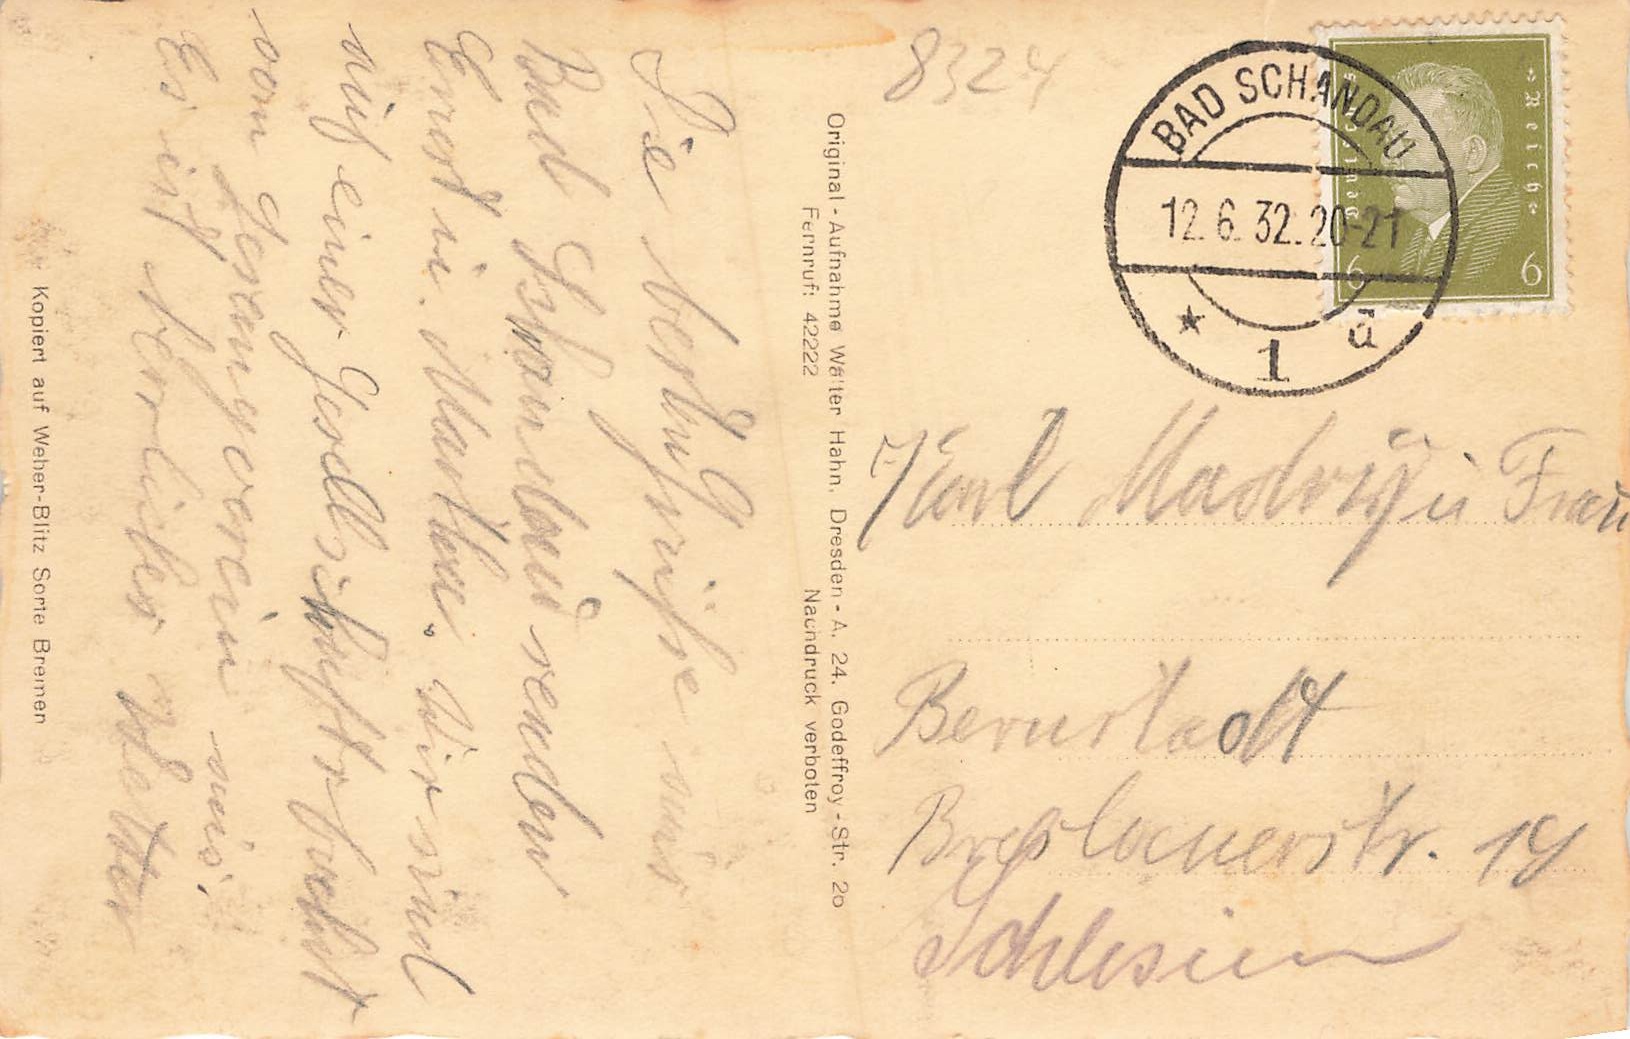 8324
BAD SCHANDAU
12.6.32.20-21
★ 1 a
Deutsches Reich
6 6
Karl Madry u Frau
Bernstadt
Breslauerstr. 19
Schlesien
Original-Aufnahme Walter Hahn, Dresden-A. 24. Godeffroy-Str. 20
Fernruf: 42222 Nachdruck verboten
Die besten Grüße aus
Bad Schandau senden
Ernst u. Marthe. Wir sind
auf einer Gesellschaftsfahrt
vom Gesangverein aus.
Es ist herrliches Wetter
Kopiert auf Weber-Blitz Sorte Bremen